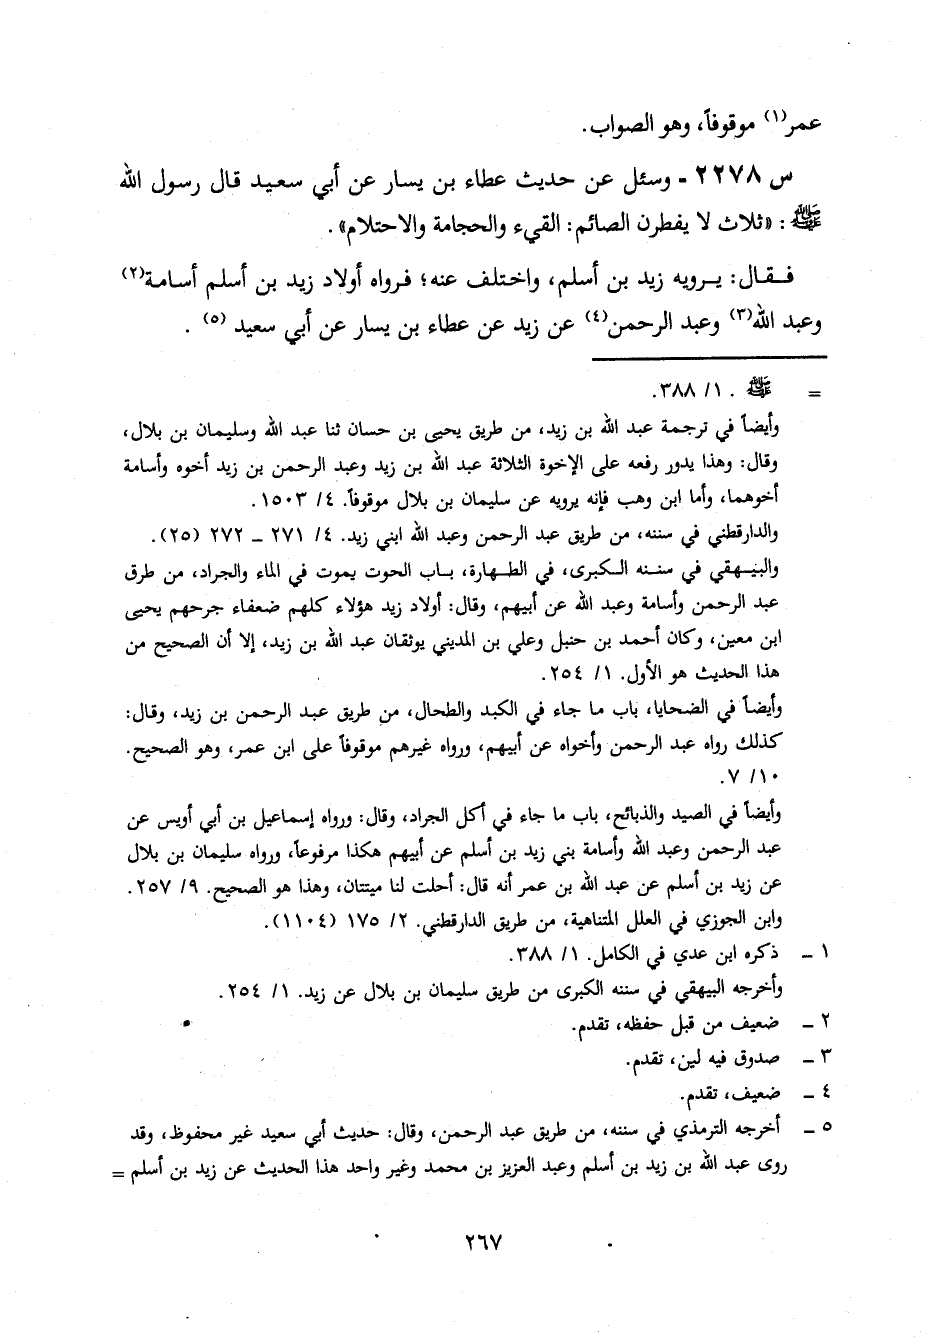 عمر(١) موقوفاً، وهو الصواب.
س ٢٢٧٨ - وسئل عن حديث عطاء بن يسار عن أبي سعيد قال رسول الله
ﷺ: «ثلاث لا يفطرن الصائم: القيء والحجامة والاحتلام».
فقال: يرويه زيد بن أسلم، واختلف عنه؛ فرواه أولاد زيد بن أسلم أسامة(٢)
وعبد الله(٣) وعبد الرحمن(٤) عن زيد عن عطاء بن يسار عن أبي سعيد (٥) .
= ﷺ . ١/ ٣٨٨.
وأيضاً في ترجمة عبد الله بن زيد، من طريق يحيى بن حسان ثنا عبد الله وسليمان بن بلال،
وقال: وهذا يدور رفعه على الإخوة الثلاثة عبد الله بن زيد وعبد الرحمن بن زيد أخوه وأسامة
أخوهما، وأما ابن وهب فإنه يرويه عن سليمان بن بلال موقوفاً. ٤/ ١٥٠٣.
والدارقطني في سننه، من طريق عبد الرحمن وعبد الله ابني زيد. ٤/ ٢٧١ - ٢٧٢ (٢٥).
والبيهقي في سننه الكبرى، في الطهارة، باب الحوت يموت في الماء والجراد، من طرق
عبد الرحمن وأسامة وعبد الله عن أبيهم، وقال: أولاد زيد هؤلاء كلهم ضعفاء جرحهم يحيى
ابن معين، وكان أحمد بن حنبل وعلي بن المديني يوثقان عبد الله بن زيد، إلا أن الصحيح من
هذا الحديث هو الأول. ١/ ٢٥٤.
وأيضاً في الضحايا، باب ما جاء في الكبد والطحال، من طريق عبد الرحمن بن زيد، وقال:
كذلك رواه عبد الرحمن وأخواه عن أبيهم، ورواه غيرهم موقوفاً على ابن عمر، وهو الصحيح.
١٠/ ٧.
وأيضاً في الصيد والذبائح، باب ما جاء في أكل الجراد، وقال: ورواه إسماعيل بن أبي أويس عن
عبد الرحمن وعبد الله وأسامة بني زيد بن أسلم عن أبيهم هكذا مرفوعاً، ورواه سليمان بن بلال
عن زيد بن أسلم عن عبد الله بن عمر أنه قال: أحلت لنا ميتتان، وهذا هو الصحيح. ٩/ ٢٥٧.
وابن الجوزي في العلل المتناهية، من طريق الدارقطني. ٢/ ١٧٥ (١١٠٤).
١ - ذكره ابن عدي في الكامل. ١/ ٣٨٨.
وأخرجه البيهقي في سننه الكبرى من طريق سليمان بن بلال عن زيد. ١/ ٢٥٤.
٢ - ضعيف من قبل حفظه، تقدم.
٣ - صدوق فيه لين، تقدم.
٤ - ضعيف، تقدم.
٥ - أخرجه الترمذي في سننه، من طريق عبد الرحمن، وقال: حديث أبي سعيد غير محفوظ، وقد
روى عبد الله بن زيد بن أسلم وعبد العزيز بن محمد وغير واحد هذا الحديث عن زيد بن أسلم =
٢٦٧